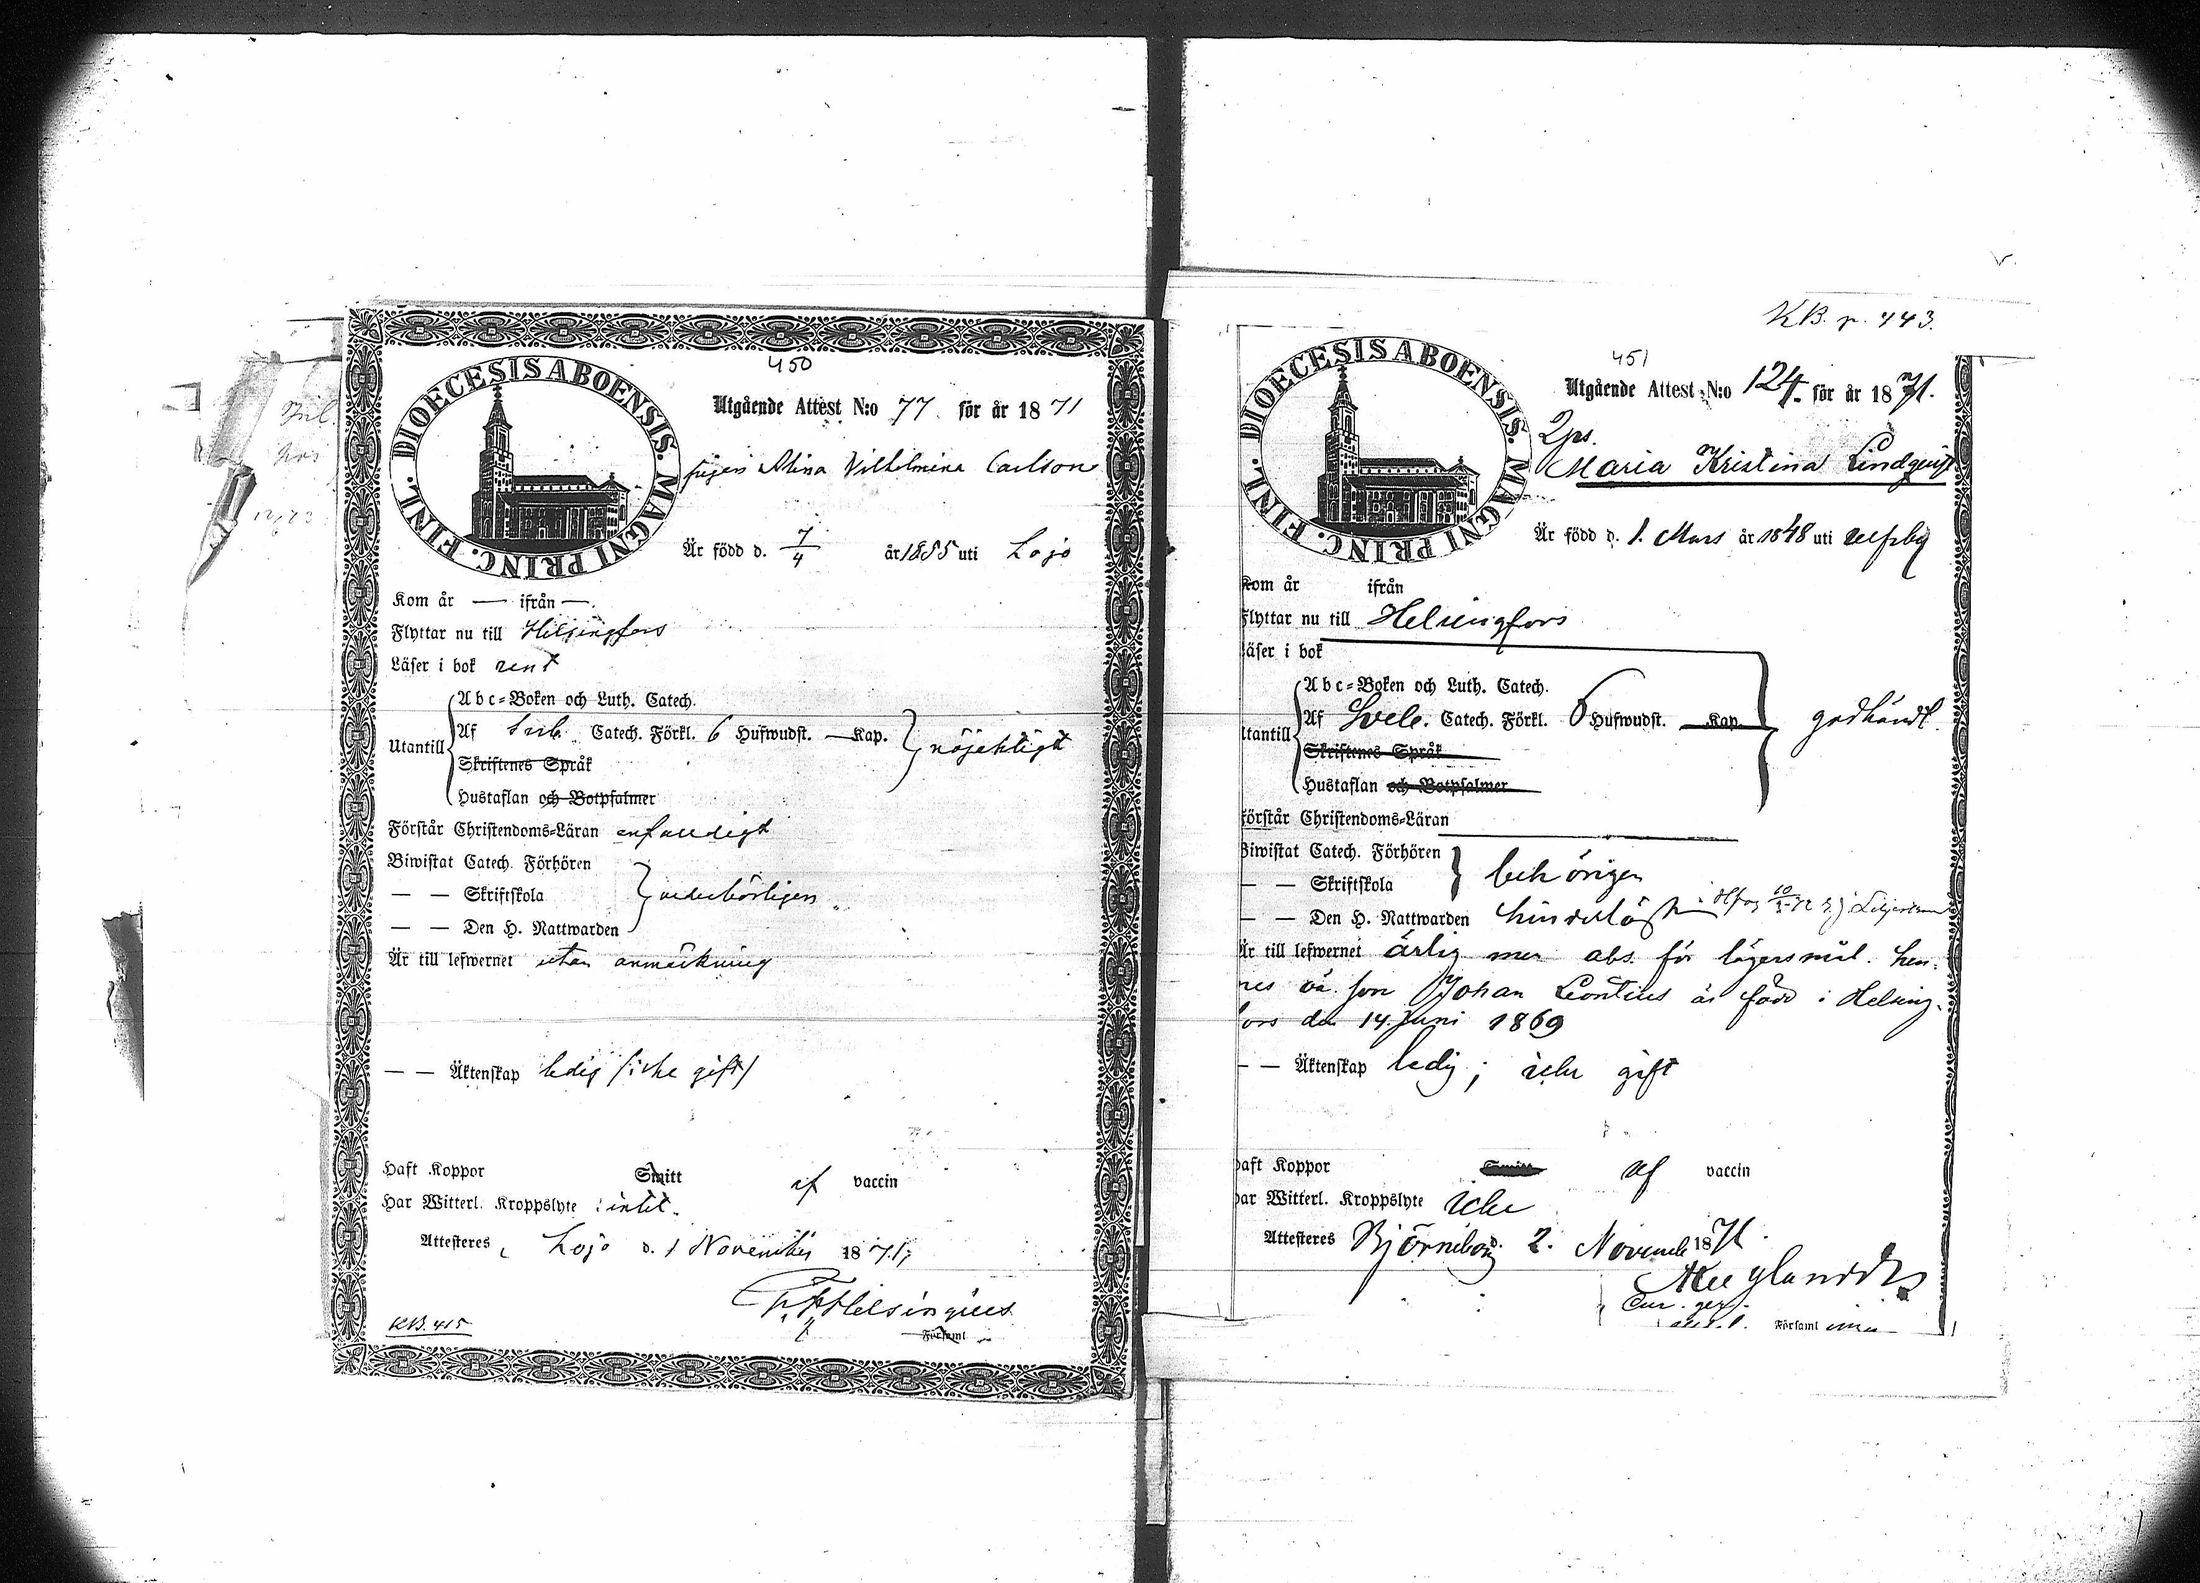 450
DIOECESIS ABOENSIS. MAGNI PRINC. FINL.
Utgående Attest N:o 77 för år 1871
pigan Alina Vilhelmina Carlson
Är född d. 7/4 år 1855 uti Lojo
Kom år — ifrån —.
Flyttar nu till Helsingfors
Läser i bok rent
Abc-Boken och Luth. Catech.
Utantill Af Sveb. Catech. Förkl. 6 Hufwudst. — Kap. nöjaktigt
Skriftenes Språk
Hustaflan och Botpsalmer
Förstår Christendoms-Läran enfaldigt
Biwistat Catech. Förhören
— — Skriftskola vederbörligen
— — Den H. Nattwarden
Är till lefwernet utan anmärkning
— — Äktenskap ledig (icke gift)
Haft Koppor Smitt af vaccin
Har Witterl. Kroppslyte intet.
Attesteres, Lojo d. 1 November 1871,
Helsingius
Församl
KB. 415
KB. p. 443.
451
DIOECESIS ABOENSIS. MAGNI PRINC. FINL.
Utgående Attest N:o 124 för år 1871.
Qps.
Maria Kristina Lindqvist
Är född d. 1. Mars år 1848 uti Ulfsby
Kom år ifrån
Flyttar nu till Helsingfors
äser i bok
Abc-Boken och Luth. Catech.
tantill Af Sveb. Catech. Förkl. 6 Hufwudst. Kap. godkändt
Skriftenes Språk
Hustaflan och Botpsalmer
Förstår Christendoms-Läran
Biwistat Catech. Förhören
— — Skriftskola behörigen
— — Den H. Nattwarden hinderlöst
Är till lefwernet ärlig men abs. för lägersmål. hen-
nes oä. son Johan Leontius är född i Helsing-
fors den 14. Juni 1869
— — Äktenskap ledig; icke gift
Haft Koppor Smitt af vaccin
har Witterl. Kroppslyte icke
Attesteres Björneborg d. 2. Novemb 1871.
Församl